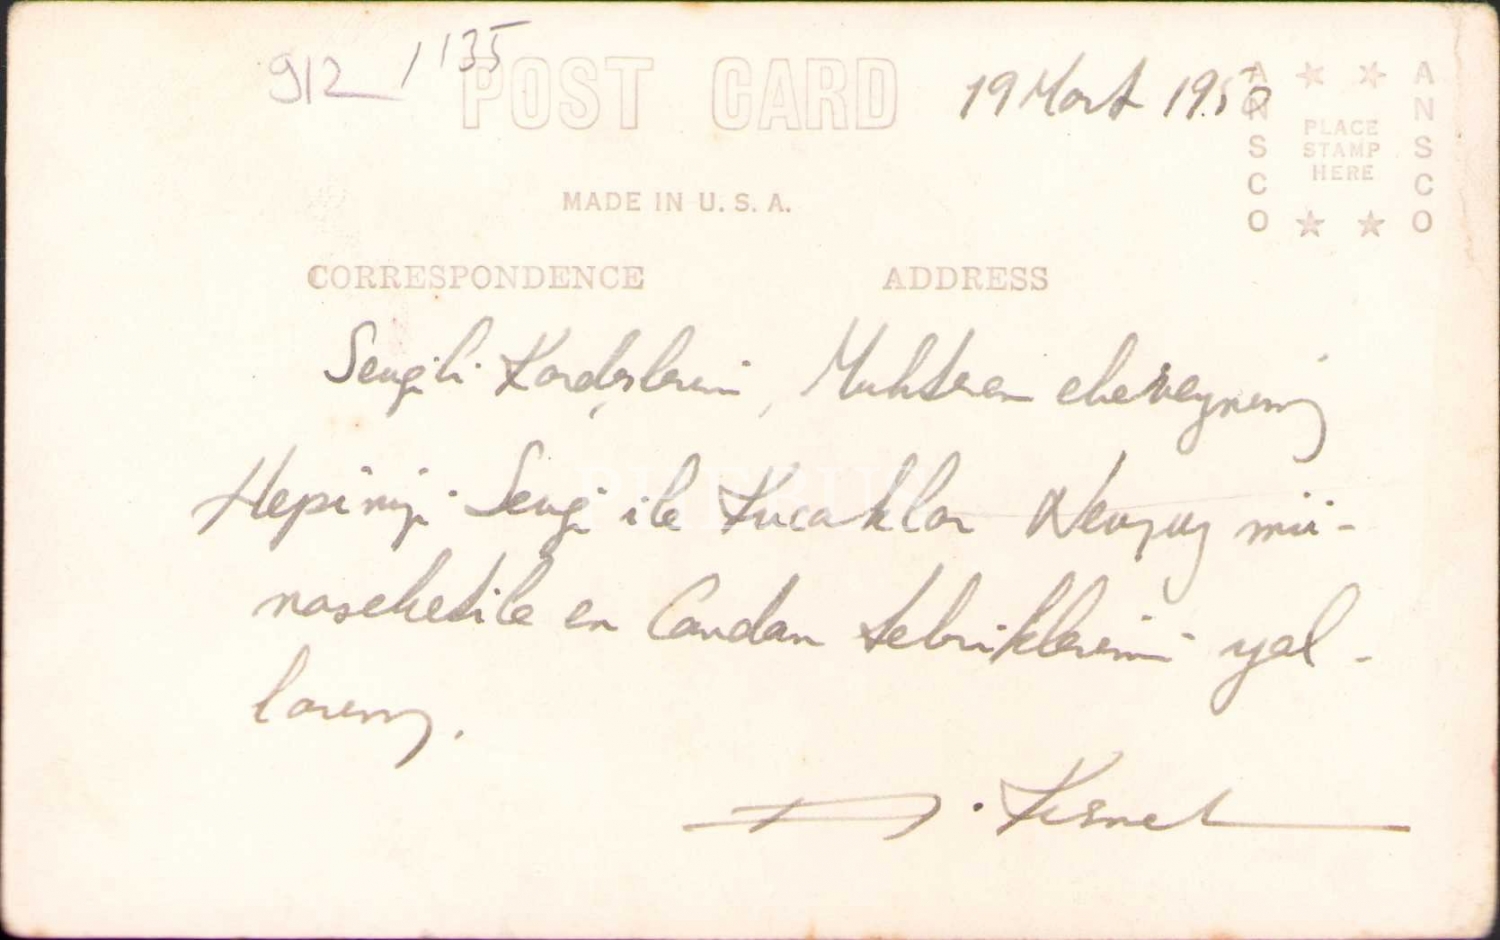 912 / 135
POST CARD
19 Mart 1950
MADE IN U. S. A.
ANSCO
PLACE
STAMP
HERE
ANSCO
CORRESPONDENCE
ADDRESS
Sevgili Kardeşlerim, Muhterem ebeveynimiz
Hepinizi Sevgi ile Kucaklar Nevruz mü-
nasebetile en Candan tebriklerimi yol-
larım.
Kısmet